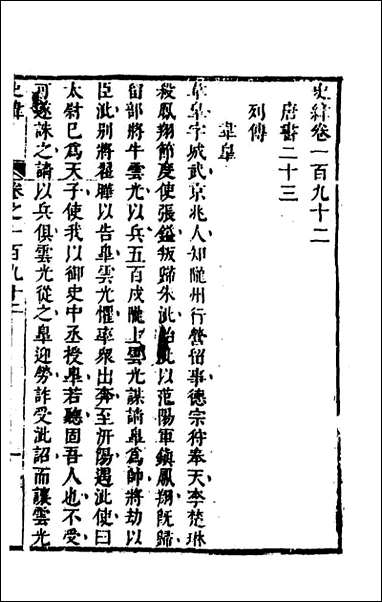 史緯卷一百九十二
唐書二十三
列傳
韋皋
韋皋字城武京兆人知隴州行營留事德宗狩奉天李楚琳
殺鳳翔節度使張鎰叛歸朱泚始泚以范陽軍鎮鳳翔旣歸
留部將牛雲光以兵五百戍隴上雲光謀請皋爲帥將劫以
臣泚別將翟曄以告皋雲光懼率衆出奔至汧陽遇泚使曰
太尉已爲天子使我以御史中丞授皋若聽固吾人也不受
可遂誅之請以兵俱雲光從之皋迎勞詐受泚詔而讓雲光
史緯 卷之一百九十二 一